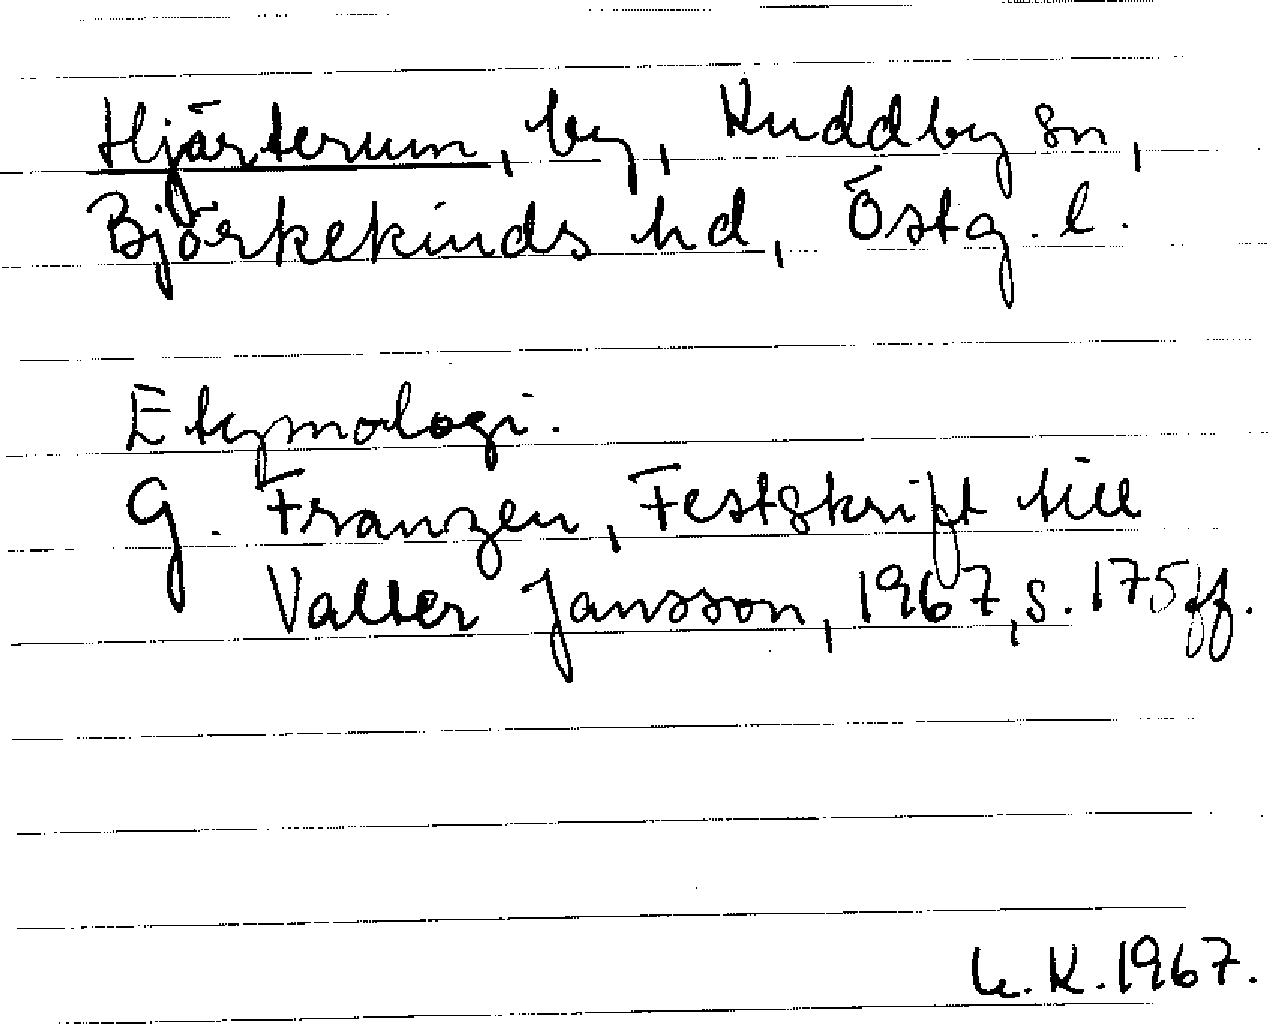 Hjärterum, by, Kuddby sn,
Björkekinds hd, Östg. l.
Etymologi.
G. Franzen, Festskrift till
Valter Jansson, 1967, s. 175 ff.
K. 1967.